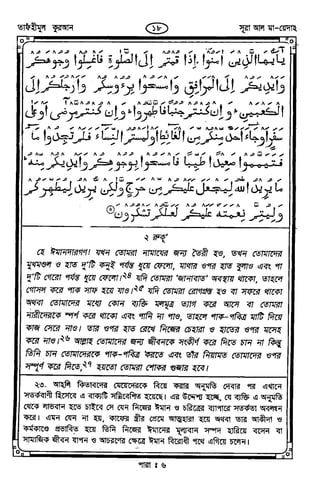 তাফহীমুল কুরআন
১৮
সূরা আল মা-য়েদাহ
يٰٓاَيُّهَا الَّذِيْنَ اٰمَنُوْٓا اِذَا قُمْتُمْ اِلَى الصَّلٰوةِ فَاغْسِلُوْا وُجُوْهَكُمْ
وَاَيْدِيَكُمْ اِلَى الْمَرَافِقِ وَامْسَحُوْا بِرُءُوْسِكُمْ وَاَرْجُلَكُمْ اِلَى
الْكَعْبَيْنِ ؕ وَاِنْ كُنْتُمْ جُنُبًا فَاطَّهَّرُوْا ؕ وَاِنْ كُنْتُمْ مَّرْضٰٓى اَوْ عَلٰى
سَفَرٍ اَوْ جَآءَ اَحَدٌ مِّنْكُمْ مِّنَ الْغَآئِطِ اَوْ لٰمَسْتُمُ النِّسَآءَ فَلَمْ تَجِدُوْا مَآءً
فَتَيَمَّمُوْا صَعِيْدًا طَيِّبًا فَامْسَحُوْا بِوُجُوْهِكُمْ وَاَيْدِيْكُمْ مِّنْهُ ؕ
مَا يُرِيْدُ اللّٰهُ لِيَجْعَلَ عَلَيْكُمْ مِّنْ حَرَجٍ وَّلٰكِنْ يُّرِيْدُ لِيُطَهِّرَكُمْ
وَلِيُتِمَّ نِعْمَتَهٗ عَلَيْكُمْ لَعَلَّكُمْ تَشْكُرُوْنَ
২ রুকূ’
হে ঈমানদারগণ! যখন তোমরা নামাযের জন্য তৈরী হও, তখন তোমাদের
মুখমণ্ডল ও হাত দু’টি কনুই পর্যন্ত ধুয়ে ফেলো, মাথার ওপর হাত বুলাও এবং পা
দু’টি গোরো পর্যন্ত ধুয়ে ফেলো।২৪ যদি তোমরা ‘জানাবাত’ অবস্থায় থাকো, তাহলে
গোসল করে পাক সাফ হয়ে যাও।২৫ যদি তোমরা রোগগ্রস্ত হও বা সফরে থাকো
অথবা তোমাদের মধ্যে কোন ব্যক্তি মলমূত্র ত্যাগ করে আসে বা তোমরা
নারীদেরকে স্পর্শ করে থাকো এবং পানি না পাও, তাহলে পাক-পবিত্র মাটি দিয়ে
কাজ সেরে নাও। তার ওপর হাত রেখে নিজের চেহারা ও হাতের ওপর মসেহ
করে নাও।২৬ আল্লাহ তোমাদের জন্য জীবনকে সংকীর্ণ করে দিতে চান না কিন্তু
তিনি চান তোমাদেরকে পাক-পবিত্র করতে এবং তাঁর নিয়ামত তোমাদের ওপর
সম্পূর্ণ করে দিতে,২৭ হয়তো তোমরা শোকর গুজার হবে।
২৩. আহলি কিতাবদের মেয়েদেরকে বিয়ে করার অনুমতি দেবার পর এখানে
সতর্কবাণী হিসেবে এ বাক্যটি সন্নিবেশিত হয়েছে। এর উদ্দেশ্য হচ্ছে, যে ব্যক্তি এ অনুমতি
থেকে লাভবান হতে চাইবে সে যেন নিজের ঈমান ও চরিত্রের ব্যাপারে সতর্কতা অবলম্বন
করে। এমন যেন না হয়, কাফের স্ত্রীর প্রেমে আত্মহারা হয়ে অথবা তার আকীদা ও
কর্মকাণ্ডে প্রভাবিত হয়ে তিনি নিজের ঈমানের মূল্যবান সম্পদ হারিয়ে বসেন বা
সামাজিক জীবন যাপন ও আচরণের ক্ষেত্রে ঈমান বিরোধী পথে এগিয়ে চলেন।
পারা : ৬